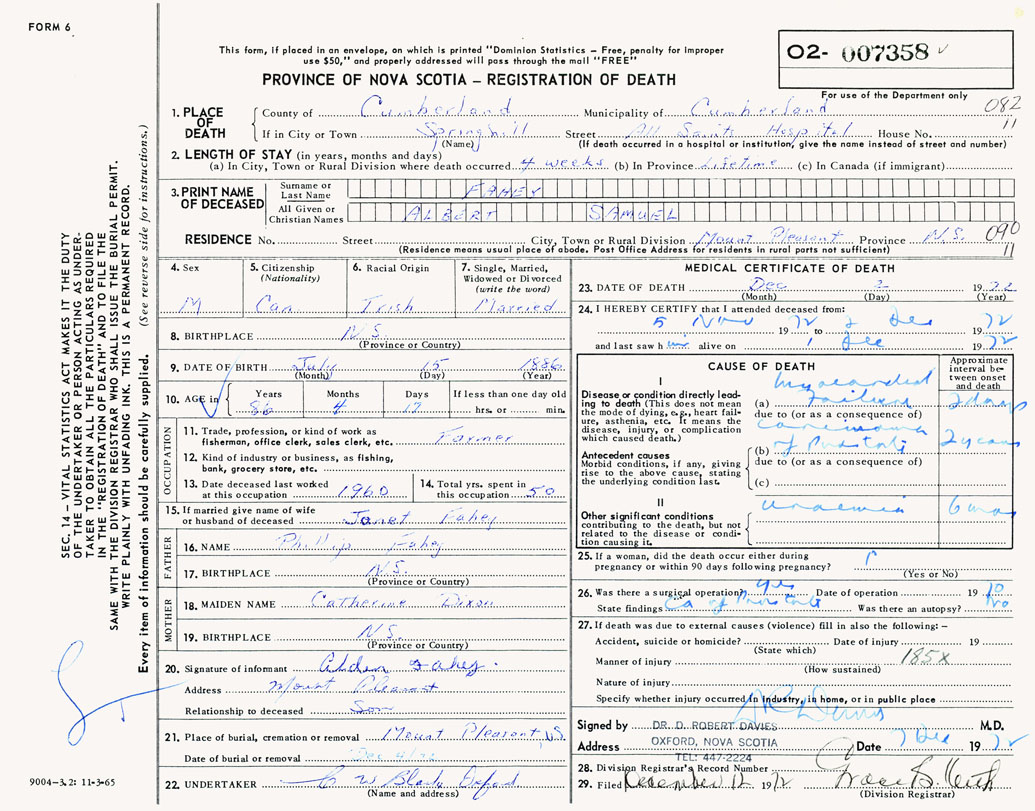 FORM 6
This form, if placed in an envelope, on which is printed "Dominion Statistics – Free, penalty for improper
use $50," and properly addressed will pass through the mail "FREE"
PROVINCE OF NOVA SCOTIA – REGISTRATION OF DEATH
02- 007358
For use of the Department only
082
11
1. PLACE OF DEATH
County of Cumberland Municipality of Cumberland
If in City or Town Springhill Street All Saints Hospital House No.
(Name) (If death occurred in a hospital or institution, give the name instead of street and number)
2. LENGTH OF STAY (in years, months and days)
(a) In City, Town or Rural Division where death occurred 4 weeks (b) In Province Lifetime (c) In Canada (if immigrant)
3. PRINT NAME OF DECEASED
Surname or Last Name FAHEY
All Given or Christian Names ALBERT SAMUEL
RESIDENCE No. Street City, Town or Rural Division Mount Pleasant Province N.S. 090
(Residence means usual place of abode. Post Office Address for residents in rural parts not sufficient) 11
4. Sex M
5. Citizenship (Nationality) Can
6. Racial Origin Irish
7. Single, Married, Widowed or Divorced (write the word) Married
8. BIRTHPLACE N.S.
(Province or Country)
9. DATE OF BIRTH July 15 1886
(Month) (Day) (Year)
10. AGE in Years 86 Months 4 Days 17 If less than one day old hrs. or min.
OCCUPATION
11. Trade, profession, or kind of work as fisherman, office clerk, sales clerk, etc. Farmer
12. Kind of industry or business, as fishing, bank, grocery store, etc.
13. Date deceased last worked at this occupation 1960
14. Total yrs. spent in this occupation 50
15. If married give name of wife or husband of deceased Janet Fahey
FATHER
16. NAME Phillip Fahey
17. BIRTHPLACE N.S.
(Province or Country)
MOTHER
18. MAIDEN NAME Catherine Dixon
19. BIRTHPLACE N.S.
(Province or Country)
20. Signature of informant Alden Fahey
Address Mount Pleasant
Relationship to deceased Son
21. Place of burial, cremation or removal Mount Pleasant, NS
Date of burial or removal Dec 4/72
22. UNDERTAKER Oxford
(Name and address)
MEDICAL CERTIFICATE OF DEATH
23. DATE OF DEATH Dec 2 1972
(Month) (Day) (Year)
24. I HEREBY CERTIFY that I attended deceased from:
5 Nov 1972 to 2 Dec 72
and last saw him alive on 1 Dec 1972
CAUSE OF DEATH
Approximate interval between onset and death
I
Disease or condition directly leading to death (This does not mean the mode of dying, e.g., heart failure, asthenia, etc. It means the disease, injury, or complication which caused death.)
(a) Myocardial Failure 2 days
due to (or as a consequence of)
Antecedent causes
Morbid conditions, if any, giving rise to the above cause, stating the underlying condition last.
(b) Carcinoma of Prostate 2 years
due to (or as a consequence of)
(c)
II
Other significant conditions contributing to the death, but not related to the disease or condition causing it.
Uraemia 6 mos
25. If a woman, did the death occur either during
pregnancy or within 90 days following pregnancy?
(Yes or No)
26. Was there a surgical operation? yes Date of operation 19 70
State findings Ca of Prostate Was there an autopsy? No
27. If death was due to external causes (violence) fill in also the following: –
Accident, suicide or homicide? Date of injury 19
(State which)
Manner of injury 185X
(How sustained)
Nature of injury
Specify whether injury occurred in industry, in home, or in public place
Signed by DR. D. ROBERT DAVIES M.D.
Address OXFORD, NOVA SCOTIA Date 7 Dec 1972
TEL: 447-2224
28. Division Registrar's Record Number
29. Filed December 12 1972
(Division Registrar)
SEC. 14 – VITAL STATISTICS ACT MAKES IT THE DUTY
OF THE UNDERTAKER OR PERSON ACTING AS UNDER-
TAKER TO OBTAIN ALL THE PARTICULARS REQUIRED
IN THE "REGISTRATION OF DEATH" AND TO FILE THE
SAME WITH THE DIVISION REGISTRAR WHO SHALL ISSUE THE BURIAL PERMIT.
WRITE PLAINLY WITH UNFADING INK. THIS IS A PERMANENT RECORD.
Every item of information should be carefully supplied. (See reverse side for instructions.)
9004-3.2: 11-3-65